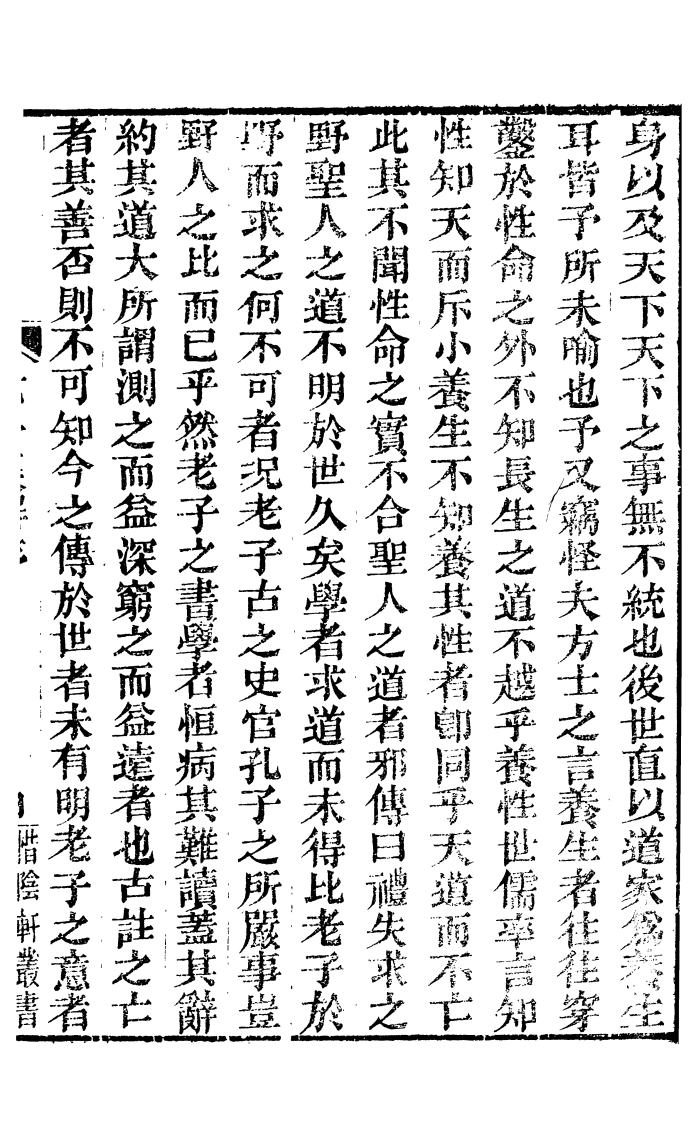 身以及天下天下之事無不統也後世直以道家爲養生
耳皆予所未喻也予又竊怪夫方士之言養生者往往穿
鑿於性命之外不知長生之道不越乎養性世儒率言知
性知天而斥小養生不知養其性者卽同乎天道而不亡
此其不聞性命之實不合聖人之道者邪傳曰禮失求之
野聖人之道不明於世久矣學者求道而未得比老子於
野而求之何不可者况老子古之史官孔子之所嚴事豈
野人之比而已乎然老子之書學者恒病其難讀蓋其辭
約其道大所謂測之而益深窮之而益遠者也古註之亡
者其善否則不可知今之傳於世者未有明老子之意者
惜陰軒叢書